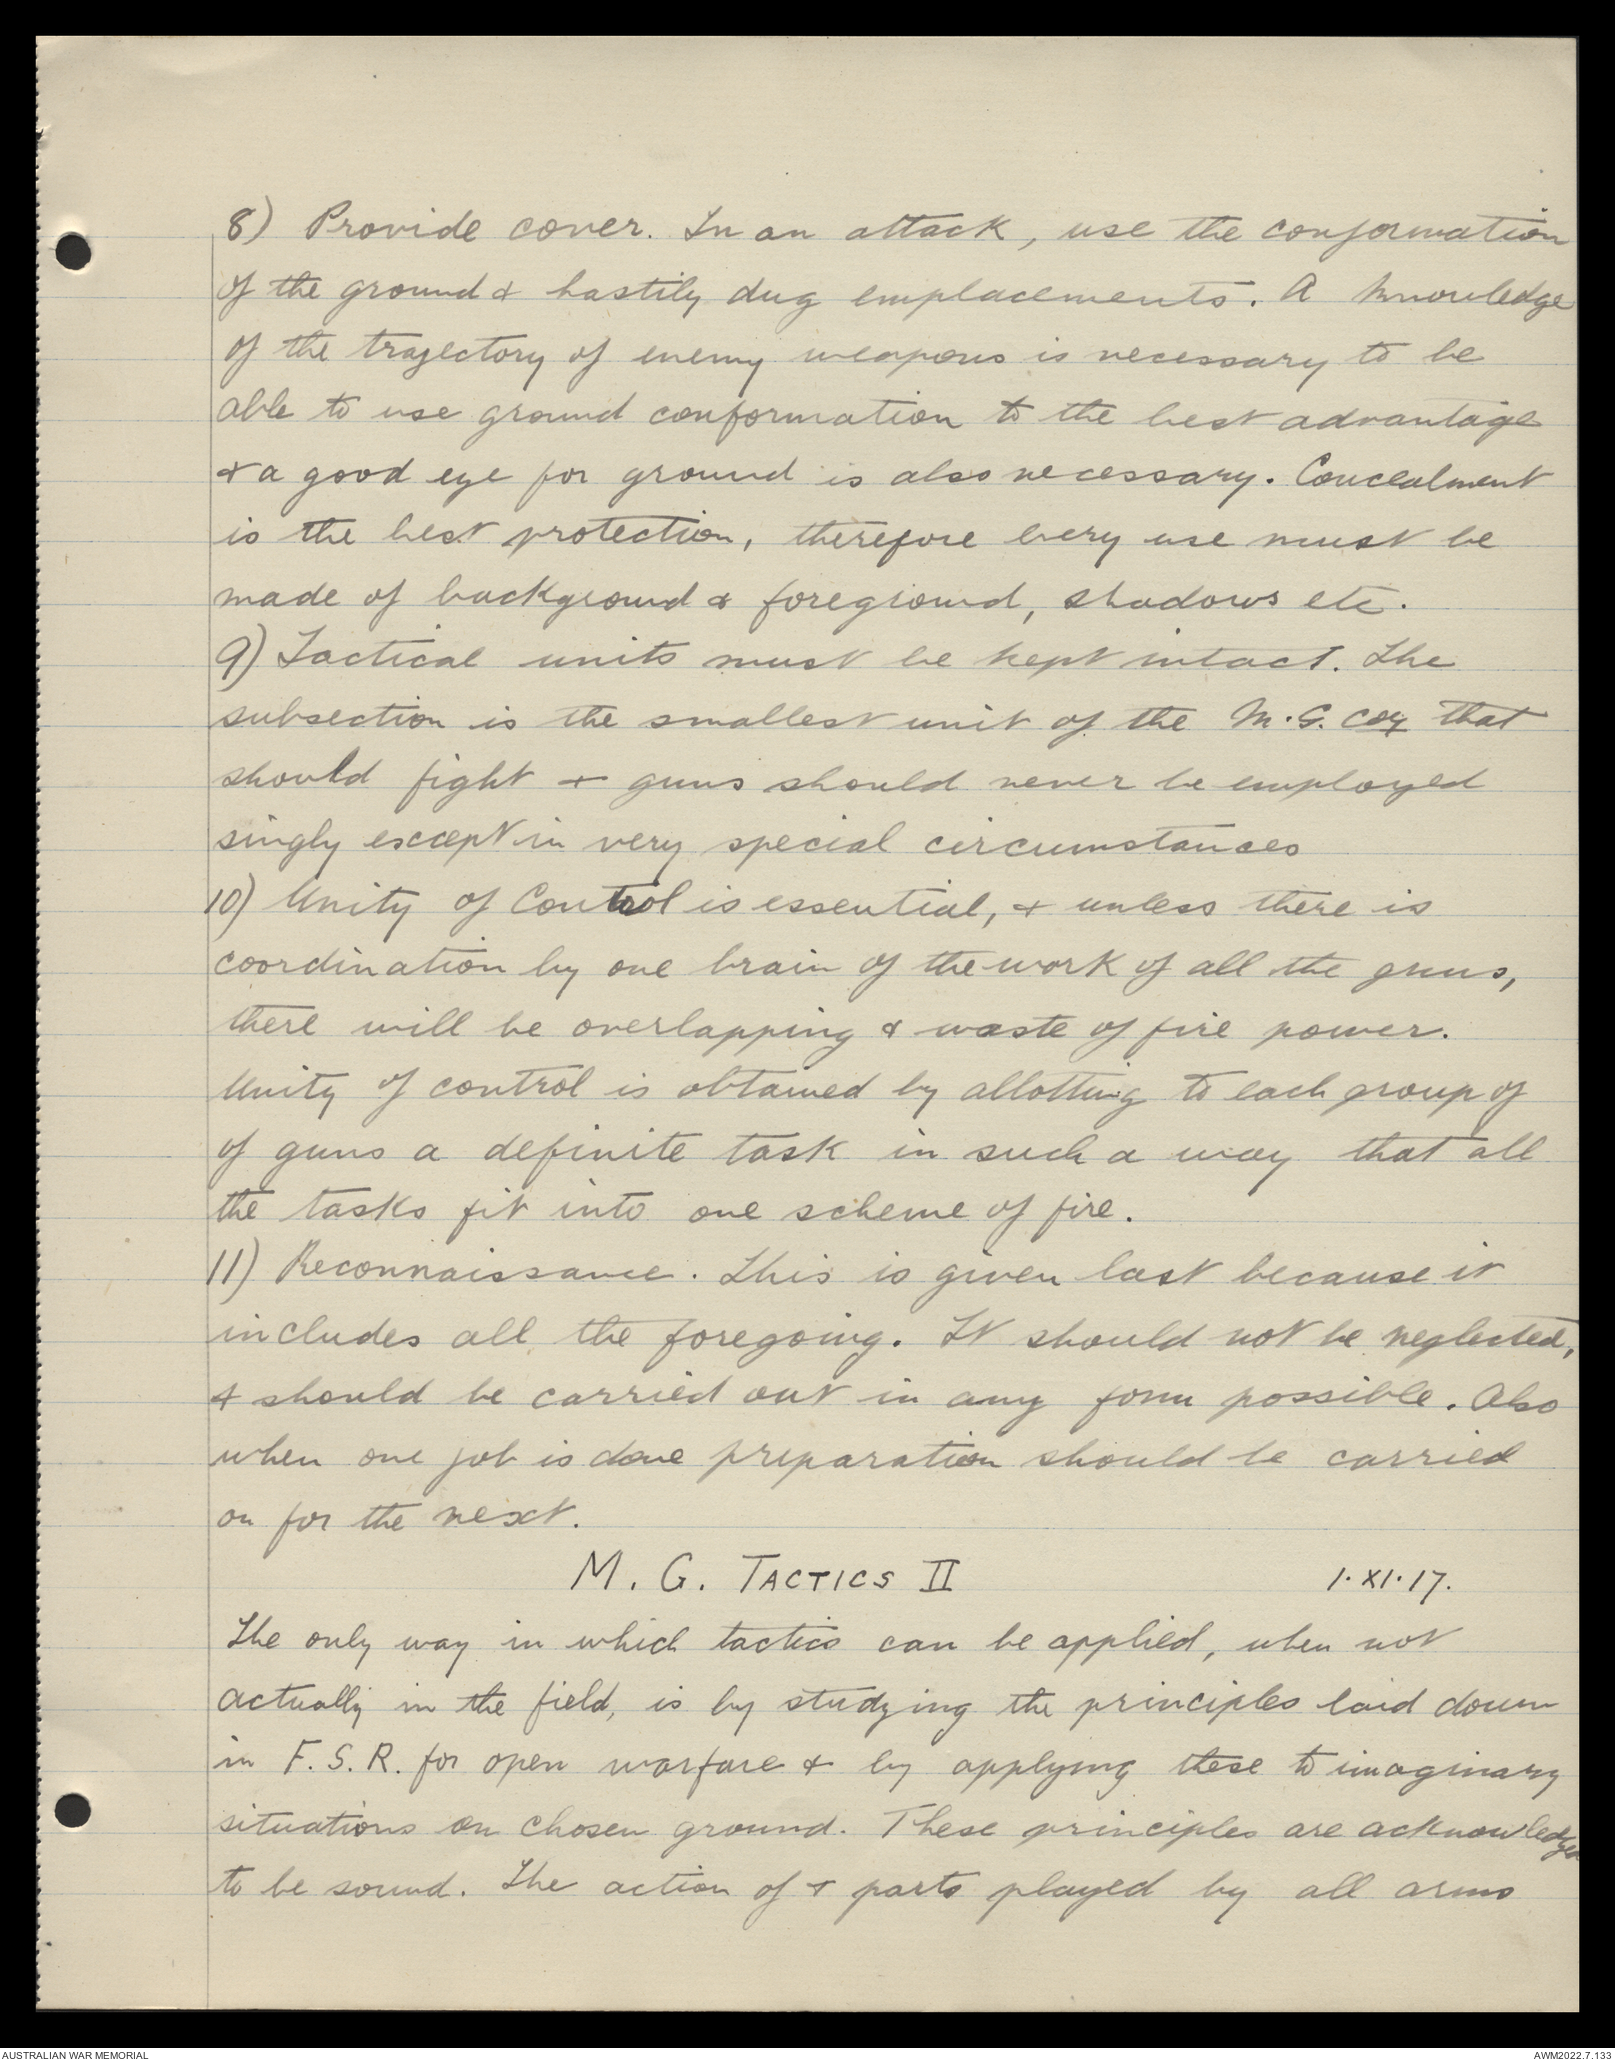 8) Provide cover. In an attack, use the conformation
of the ground & hastily dug emplacements. A knowledge
of the trajectory of enemy weapons is necessary to be
able to use ground conformation to the best advantage
& a good eye for ground is also necessary. Concealment
is the best protection, therefore every use must be
made of background & foreground, shadows etc.
9) Tactical units must be kept intact. The
subsection is the smallest unit of the M.G. Coy that
should fight & guns should never be employed
singly except in very special circumstances
10) Unity of Control is essential, & unless there is
coordination by one brain of the work of all the guns,
there will be overlapping & waste of fire power.
Unity of control is obtained by allotting to each group of
of guns a definite task in such a way that all
the tasks fit into one scheme of fire.
11) Reconnaissance. This is given last because it
includes all the foregoing. It should not be neglected,
& should be carried out in any form possible. Also
when one job is done preparation should be carried
on for the next.
M. G. TACTICS II 1.XI.17.
The only way in which tactics can be applied, when not
actually in the field, is by studying the principles laid down
in F.S.R. for open warfare & by applying these to imaginary
situations on chosen ground. These principles are acknowledged
to be sound. The action of & parts played by all arms
AUSTRALIAN WAR MEMORIAL AWM2022.7.133